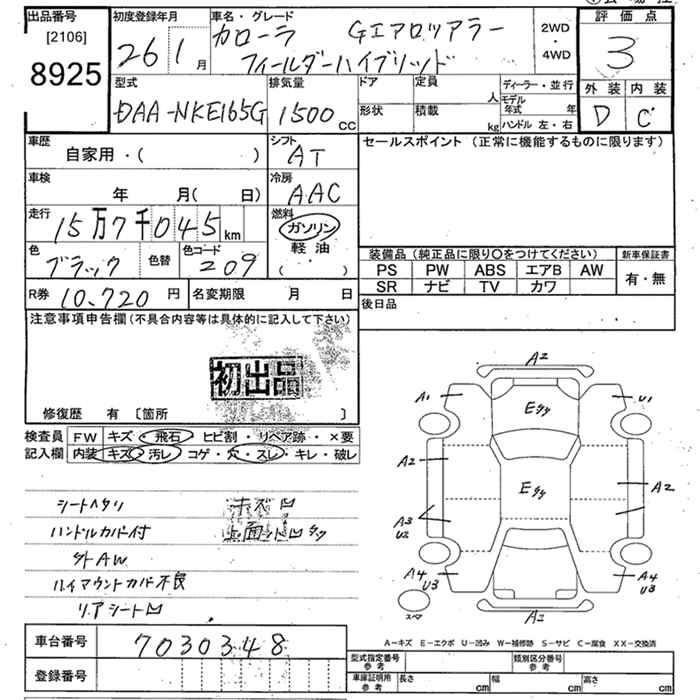 出品番号
[2106]
8925
初度登録年月
26 1月
車名・グレード
カローラ Gエアロツアラー
フィールダーハイブリッド
2WD
4WD
評価点
3
外装 内装
D C
型式
DAA-NKE165G
排気量
1500cc
ドア 定員 人
形状 積載 kg
ディーラー・並行
モデル年式 年
ハンドル 左・右
車歴
自家用・( )
シフト
AT
セールスポイント (正常に機能するものに限ります)
車検
年 月(日)
冷房
AAC
走行
15万7千045km
燃料
ガソリン
軽油
( )
色
ブラック
色替
色コード
209
装備品(純正品に限り○をつけてください)
新車保証書
PS PW ABS エアB AW
SR ナビ TV カワ
有・無
R券 10,720円
名変期限 月 日
後日品
注意事項申告欄(不具合内容等は具体的に記入して下さい)
初出品
修復歴 有 〔箇所 〕
検査員 FW キズ・飛石・ヒビ割・リペア跡・×要
記入欄 内装 キズ・汚レ・コゲ・穴・スレ・キレ・破レ
シートヘタリ
ハンドルカバー付
外AW
ハイマウントカバー不良
リアシート凹
A2
A1
U1
Eタタ
A2
Eタタ
A2
A3
U2
A4
U3
A4
U3
スペア
A2
A-キズ E-エクボ U-凹み W-補修跡 S-サビ C-腐食 XX-交換済
車台番号 7030348
登録番号
型式指定番号 参考
類別区分番号 参考
車庫証明用 参考
長さ cm
幅 cm
高さ cm